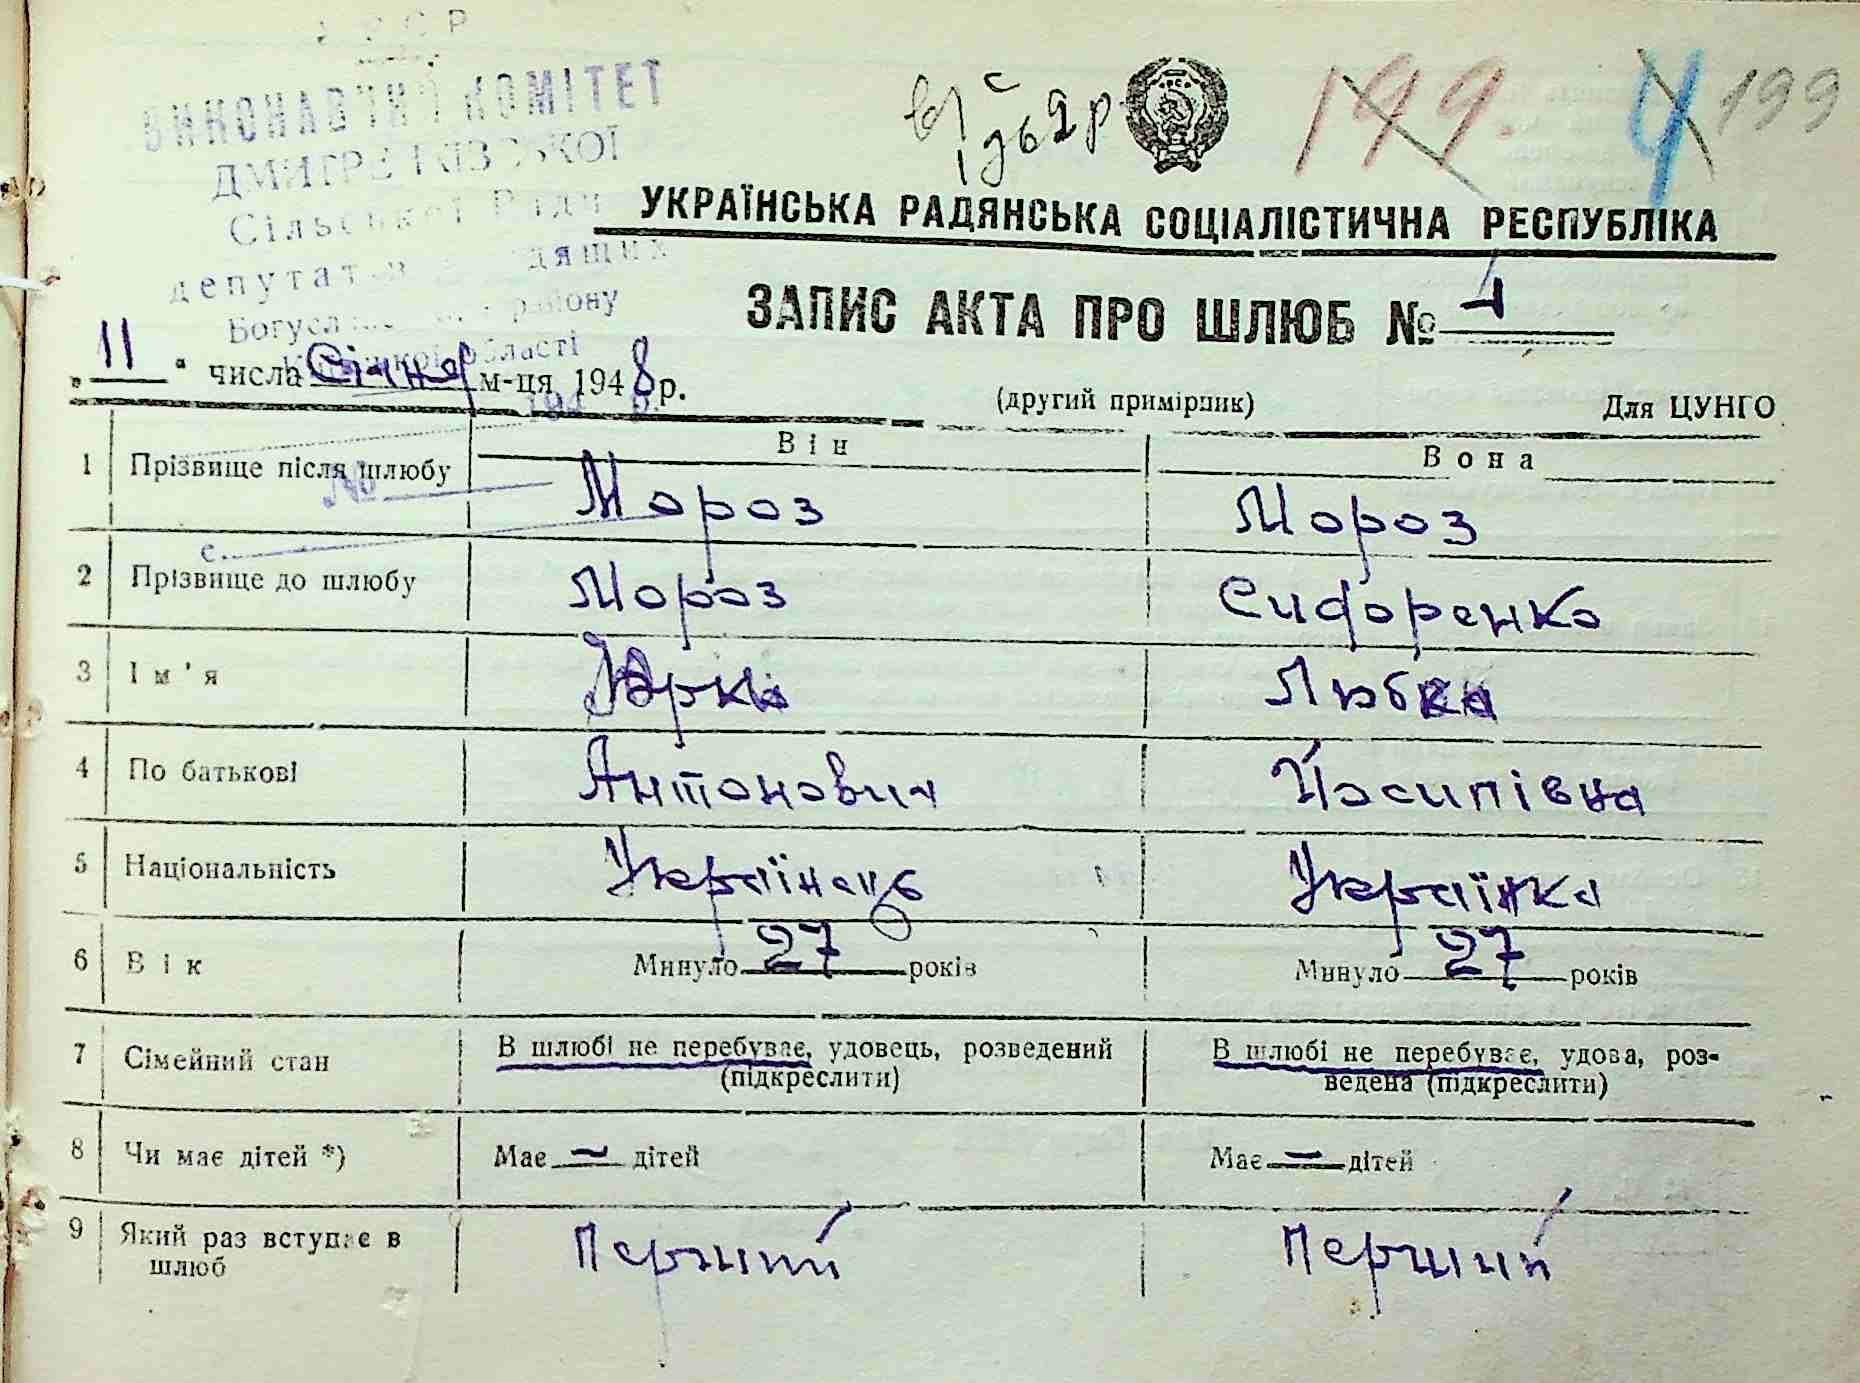 УРСР
ВИКОНАВЧИЙ КОМІТЕТ
ДМИТРЕНКІВСЬКОЇ
Сільської Ради
депутатів трудящих
Богуславського району
Київської області
194 р.
№
с.
199. 4 199
УКРАЇНСЬКА РАДЯНСЬКА СОЦІАЛІСТИЧНА РЕСПУБЛІКА
ЗАПИС АКТА ПРО ШЛЮБ № 1
„ 11 " числа Січня м-ця 1948 р.
(другий примірник) Для ЦУНГО
Він Вона
1 Прізвище після шлюбу Мороз Мороз
2 Прізвище до шлюбу Мороз Сидоренко
3 Ім'я Юрко Любка
4 По батькові Антонович Йосипівна
5 Національність Українець Українка
6 Вік Минуло 27 років Минуло 27 років
7 Сімейний стан В шлюбі не перебуває, удовець, розведений (підкреслити) В шлюбі не перебуває, удова, роз-
ведена (підкреслити)
8 Чи має дітей *) Має — дітей Має — дітей
9 Який раз вступає в шлюб Перший Перший